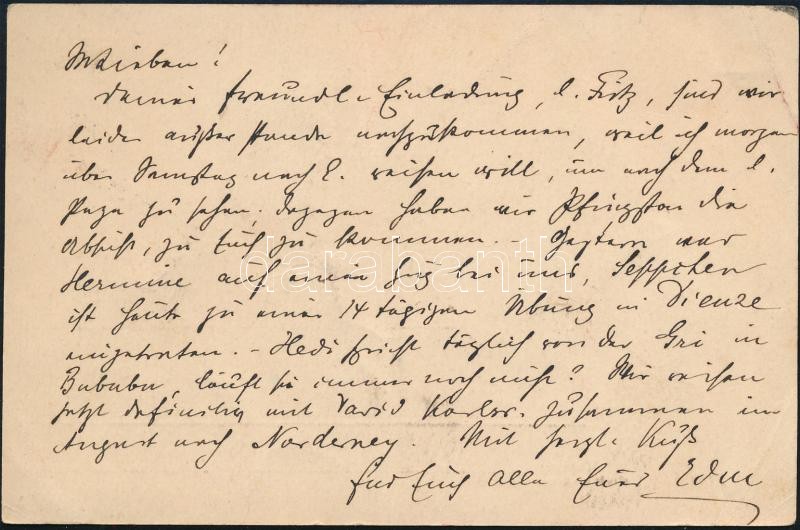 M Lieben!
Deiner freundl. Einladung, l. Fritz, sind wir
leider außer Stande nachzukommen, weil ich morgen
über Samstag nach L. reisen will, um nach dem l.
Papa zu sehen; dagegen haben wir Pfingsten die
Absicht, zu Euch zu kommen. – Gestern war
Hermine auf einen Zug bei uns, Seppchen
ist heute zu einer 14 tägigen Übung in Dieuze
eingetreten. – Hedi spricht täglich von der Gri in
läuft sie immer noch nicht? Wir reisen
jetzt definitiv mit David Karlsr. zusammen im
August nach Norderney. Mit herzl. Kuß
für Euch alle Euer Edm
darabanth